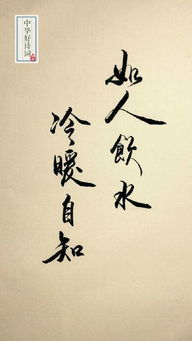 中华好诗词
如人飲水
冷暖自知